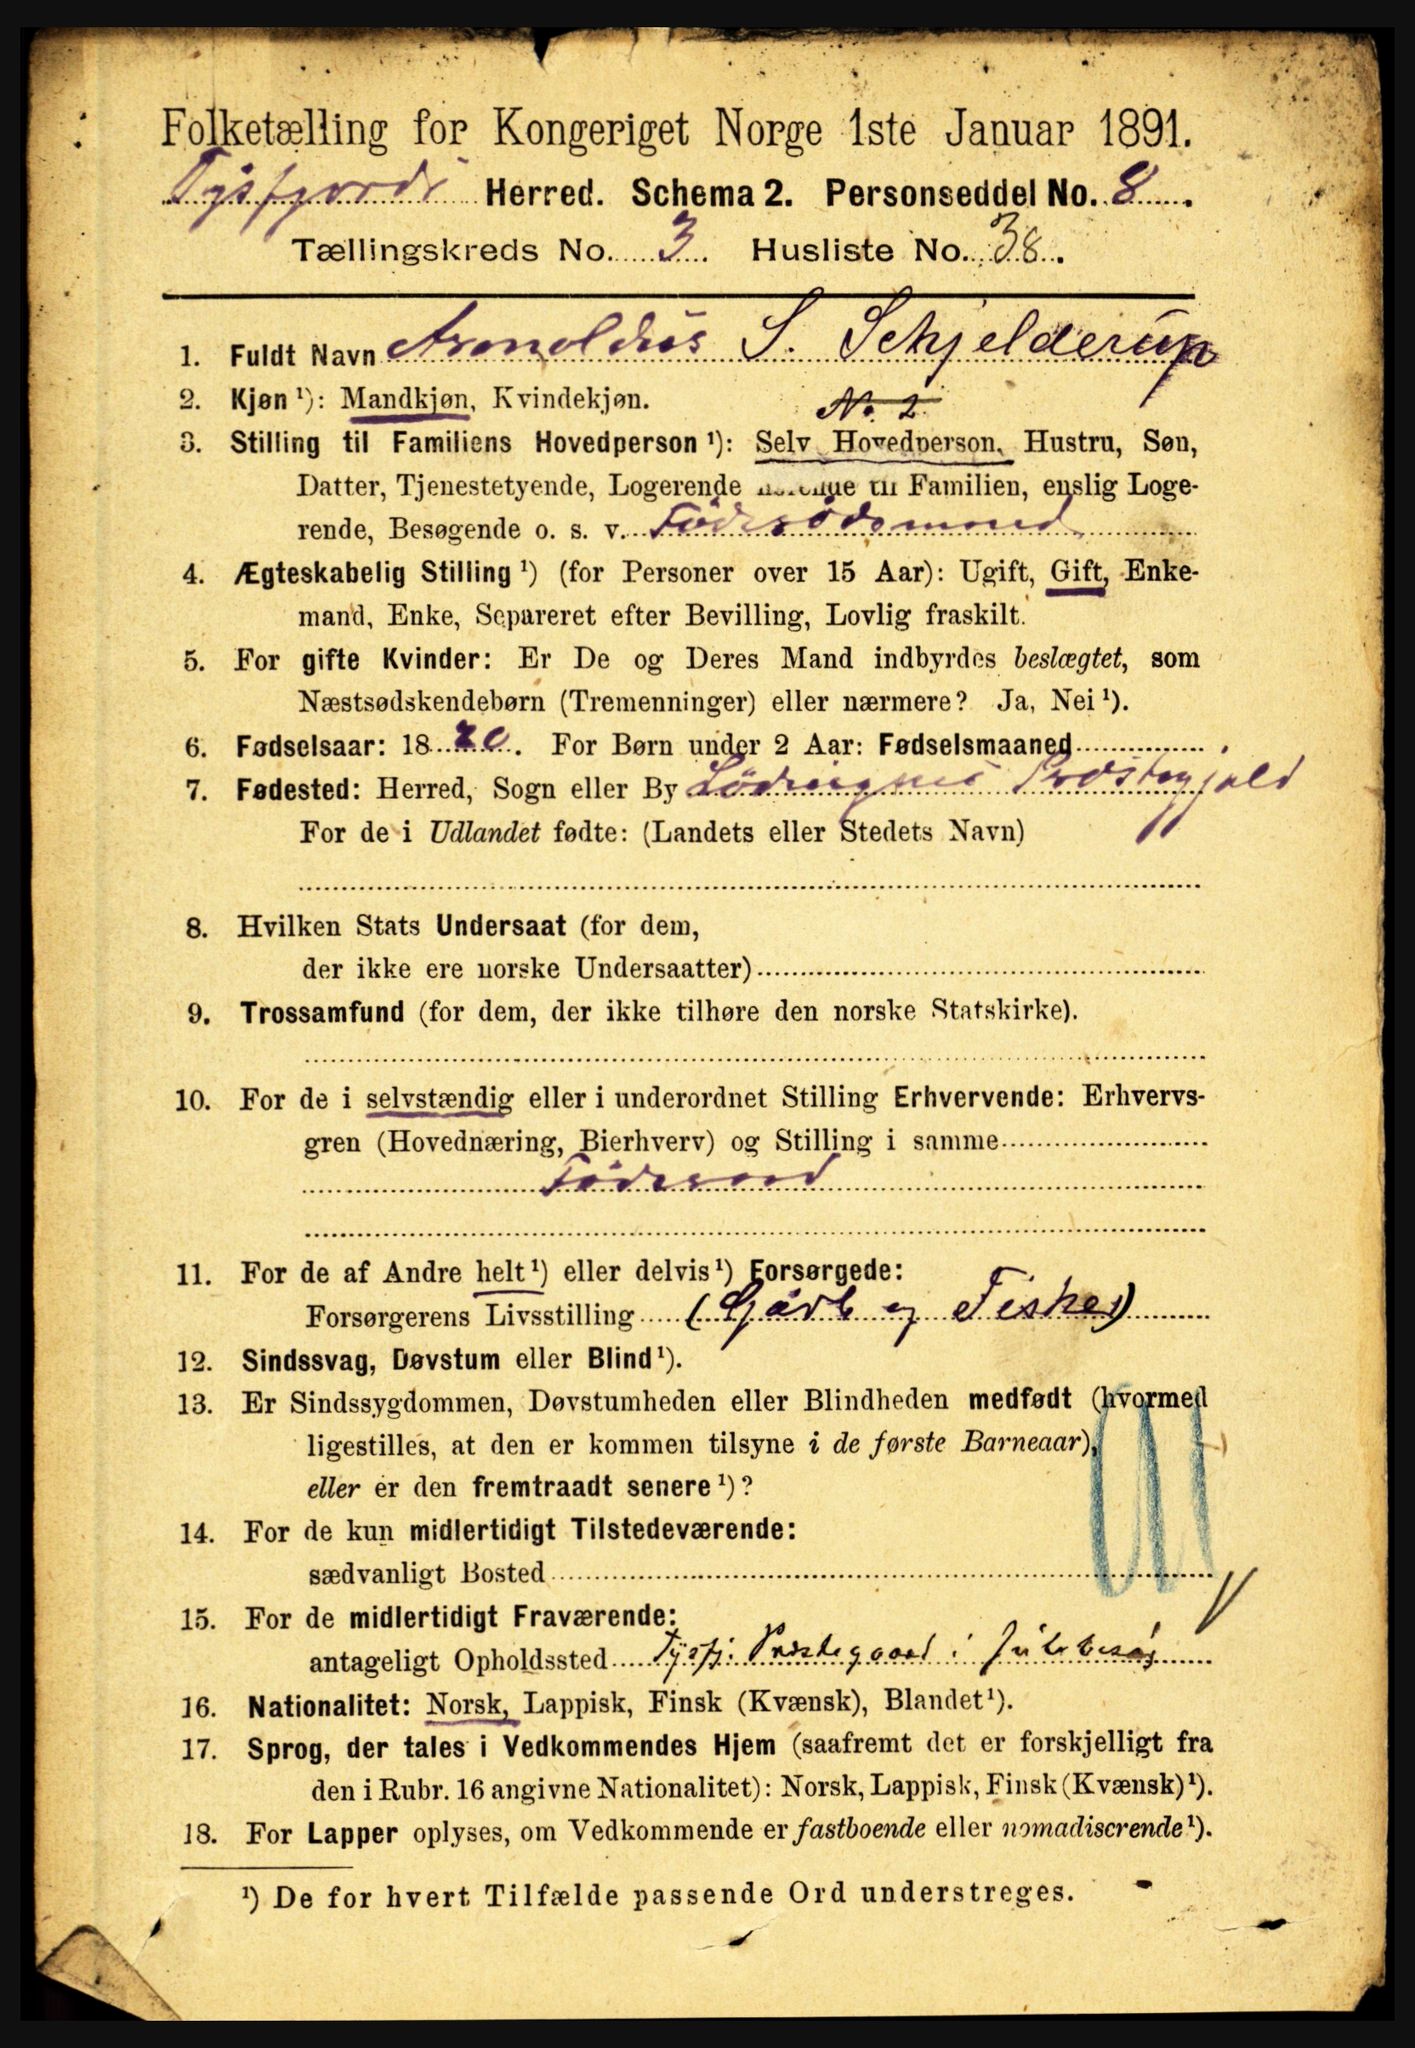 Folketælling for Kongeriget Norge 1ste Januar 1891.
Tysfjords Herred. Schema 2. Personseddel No. 8.
Tællingskreds No. 3. Husliste No. 38.
1. Fuldt Navn Arnoldus S. Schjelderup
2. Kjøn ¹): Mandkjøn, Kvindekjøn.
No. 2
3. Stilling til Familiens Hovedperson ¹): Selv Hovedperson, Hustru, Søn,
Datter, Tjenestetyende, Logerende hørende til Familien, enslig Loge-
rende, Besøgende o. s. v. Föderaadsmand
4. Ægteskabelig Stilling ¹) (for Personer over 15 Aar): Ugift, Gift, Enke-
mand, Enke, Separeret efter Bevilling, Lovlig fraskilt.
5. For gifte Kvinder: Er De og Deres Mand indbyrdes beslægtet, som
Næstsødskendebørn (Tremenninger) eller nærmere? Ja, Nei ¹).
6. Fødselsaar: 1820. For Børn under 2 Aar: Fødselsmaaned
7. Fødested: Herred, Sogn eller By Lödingens Præstegjeld
For de i Udlandet fødte: (Landets eller Stedets Navn)
8. Hvilken Stats Undersaat (for dem,
der ikke ere norske Undersaatter)
9. Trossamfund (for dem, der ikke tilhøre den norske Statskirke).
10. For de i selvstændig eller i underordnet Stilling Erhvervende: Erhvervs-
gren (Hovednæring, Bierhverv) og Stilling i samme
Föderaad
11. For de af Andre helt ¹) eller delvis ¹) Forsørgede:
Forsørgerens Livsstilling (Gårdb og Fisker)
12. Sindssvag, Døvstum eller Blind ¹).
13. Er Sindssygdommen, Døvstumheden eller Blindheden medfødt (hvormed
ligestilles, at den er kommen tilsyne i de første Barneaar),
eller er den fremtraadt senere ¹)?
14. For de kun midlertidigt Tilstedeværende:
sædvanligt Bosted
15. For de midlertidigt Fraværende:
antageligt Opholdssted Tysfj. Præstegaard i Julebesög
16. Nationalitet: Norsk, Lappisk, Finsk (Kvænsk), Blandet ¹).
17. Sprog, der tales i Vedkommendes Hjem (saafremt det er forskjelligt fra
den i Rubr. 16 angivne Nationalitet): Norsk, Lappisk, Finsk (Kvænsk) ¹).
18. For Lapper oplyses, om Vedkommende er fastboende eller nomadiserende ¹).
¹) De for hvert Tilfælde passende Ord understreges.